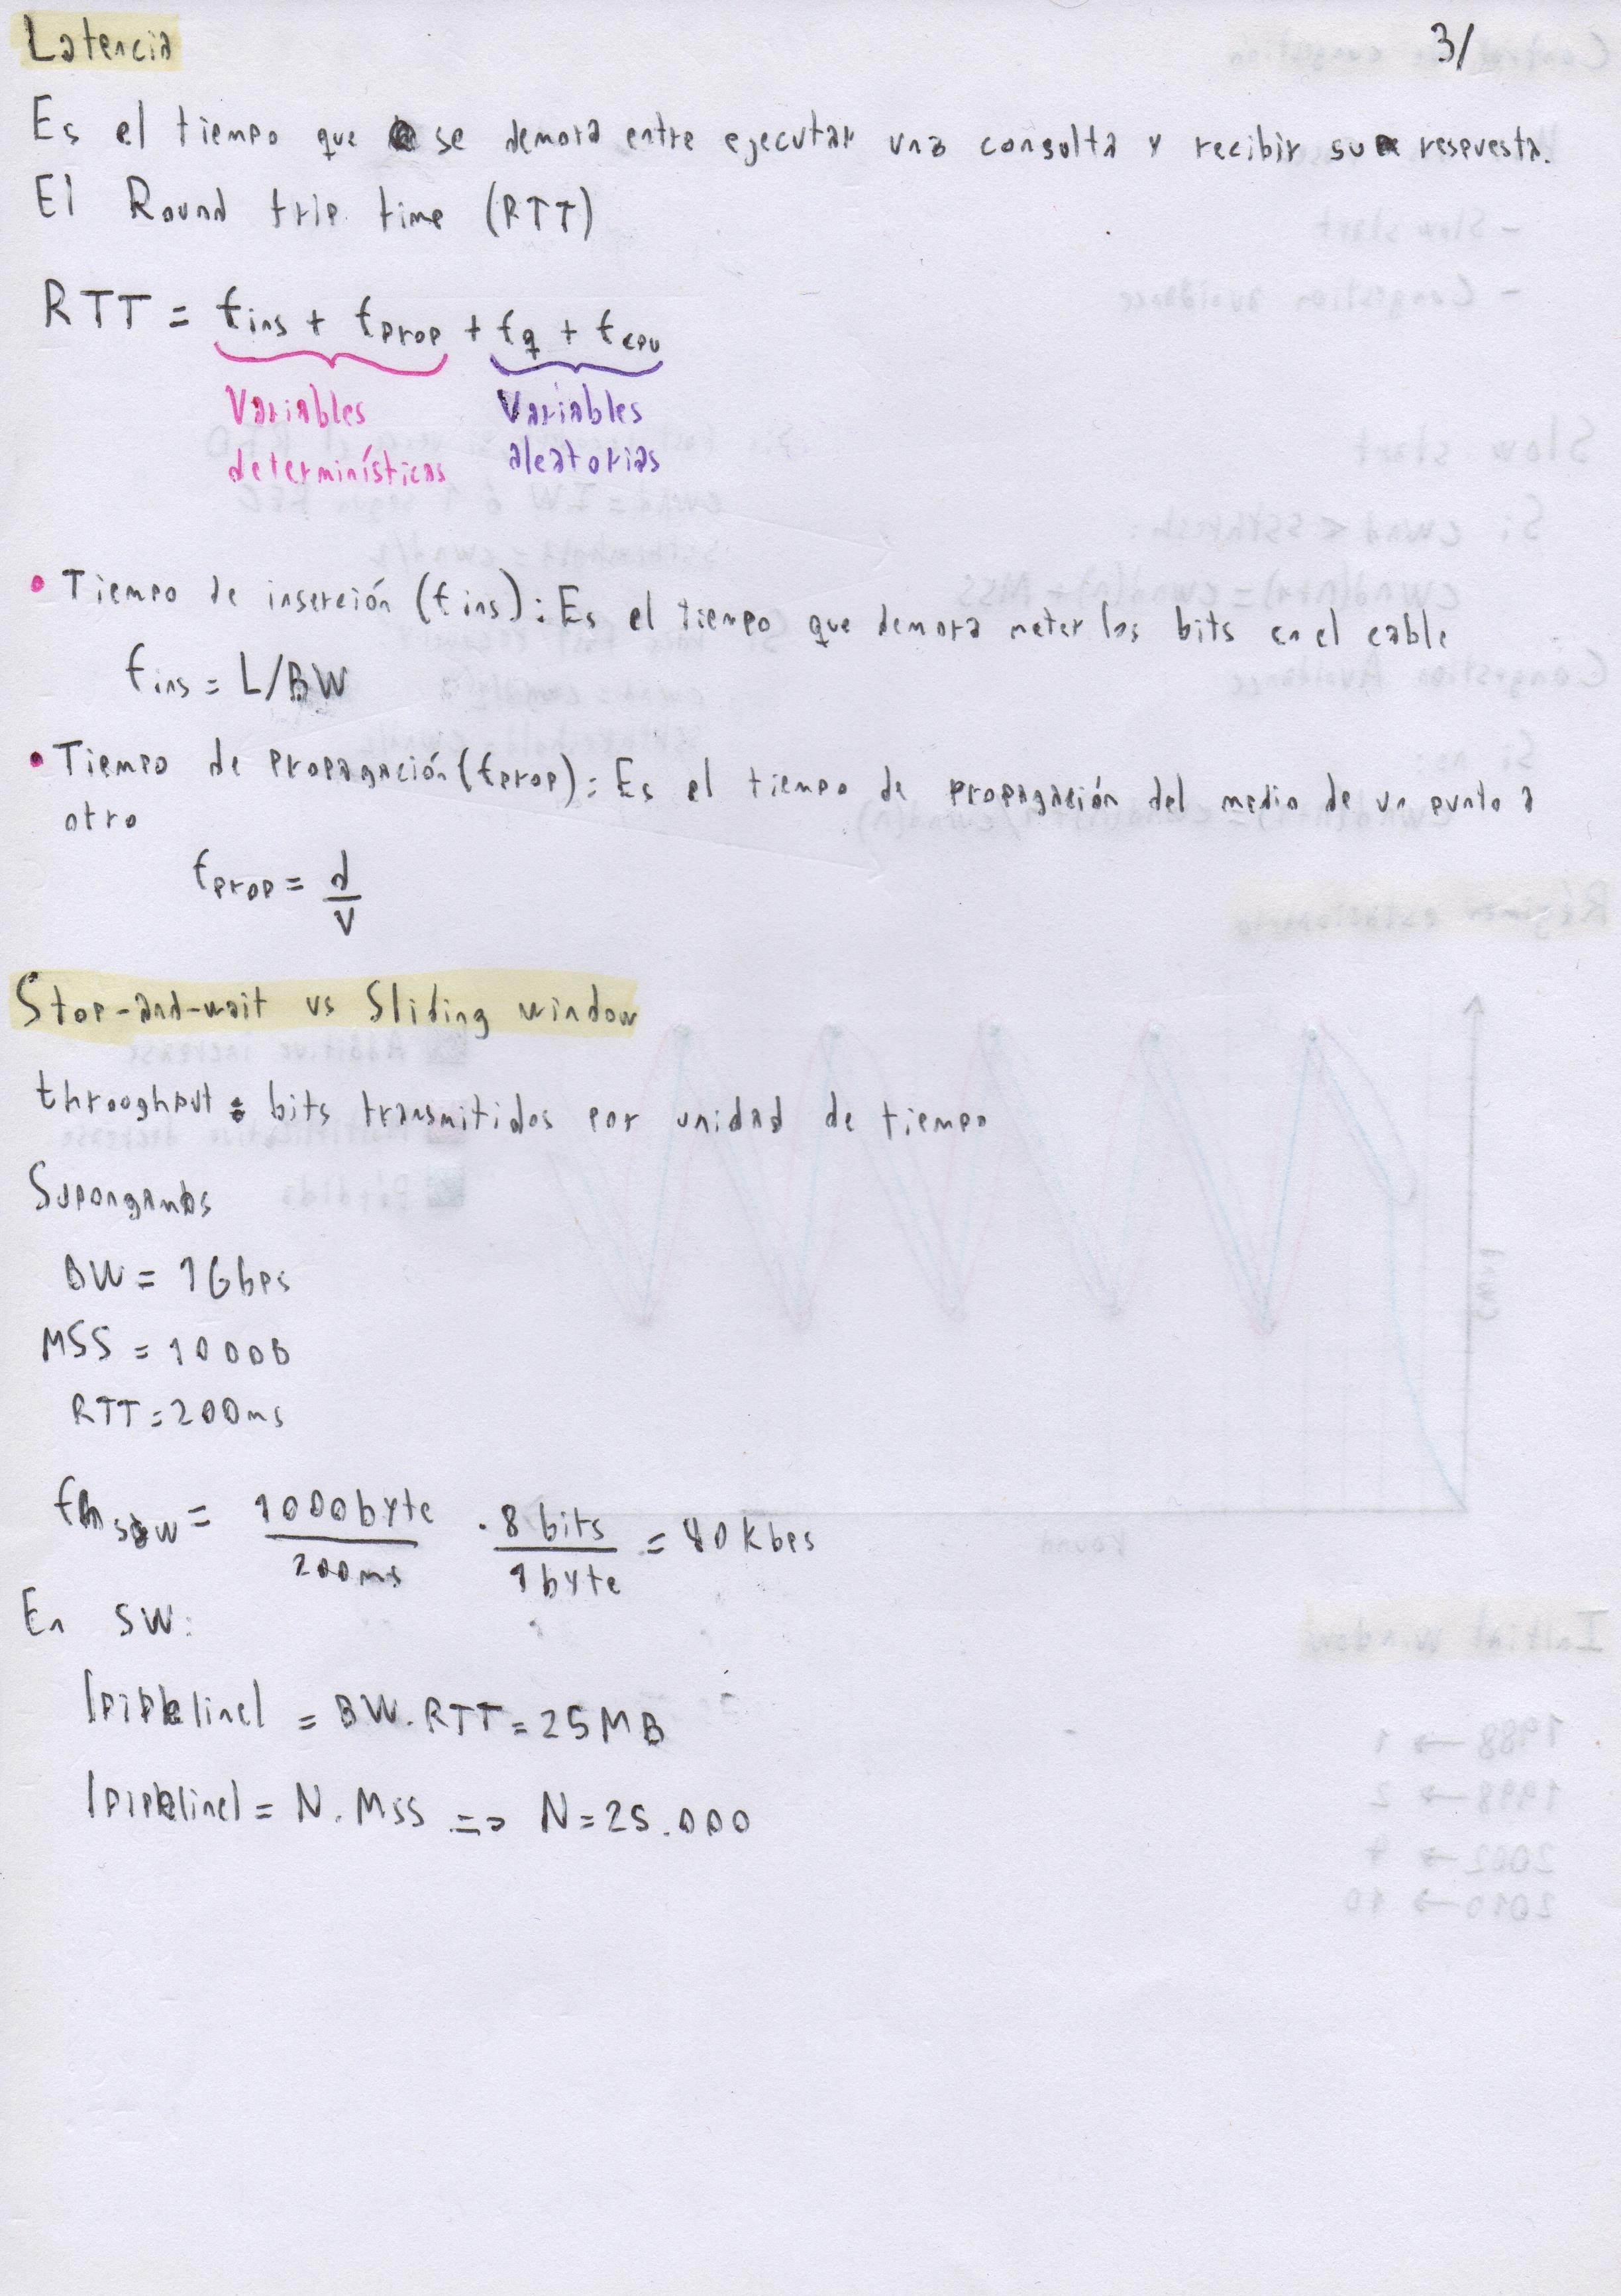 Latencia
3/
Es el tiempo que se demora entre ejecutar una consulta y recibir su respuesta.
El Round trip time (RTT)
RTT = tins + tprop + tq + tcpu
Variables determinísticas
Variables aleatorias
• Tiempo de inserción (tins): Es el tiempo que demora meter los bits en el cable
tins = L/BW
• Tiempo de propagación (tprop): Es el tiempo de propagación del medio de un punto a
otro
tprop = d/v
Stop-and-wait vs Sliding window
throoghput: bits transmitidos por unidad de tiempo
Supongamos
BW = 1Gbps
MSS = 1000B
RTT = 200ms
= 1000byte/200ms . 8 bits/1byte = 40kbps
En SW:
|pipeline| = BW.RTT = 25MB
|pipeline| = N.MSS => N = 25.000